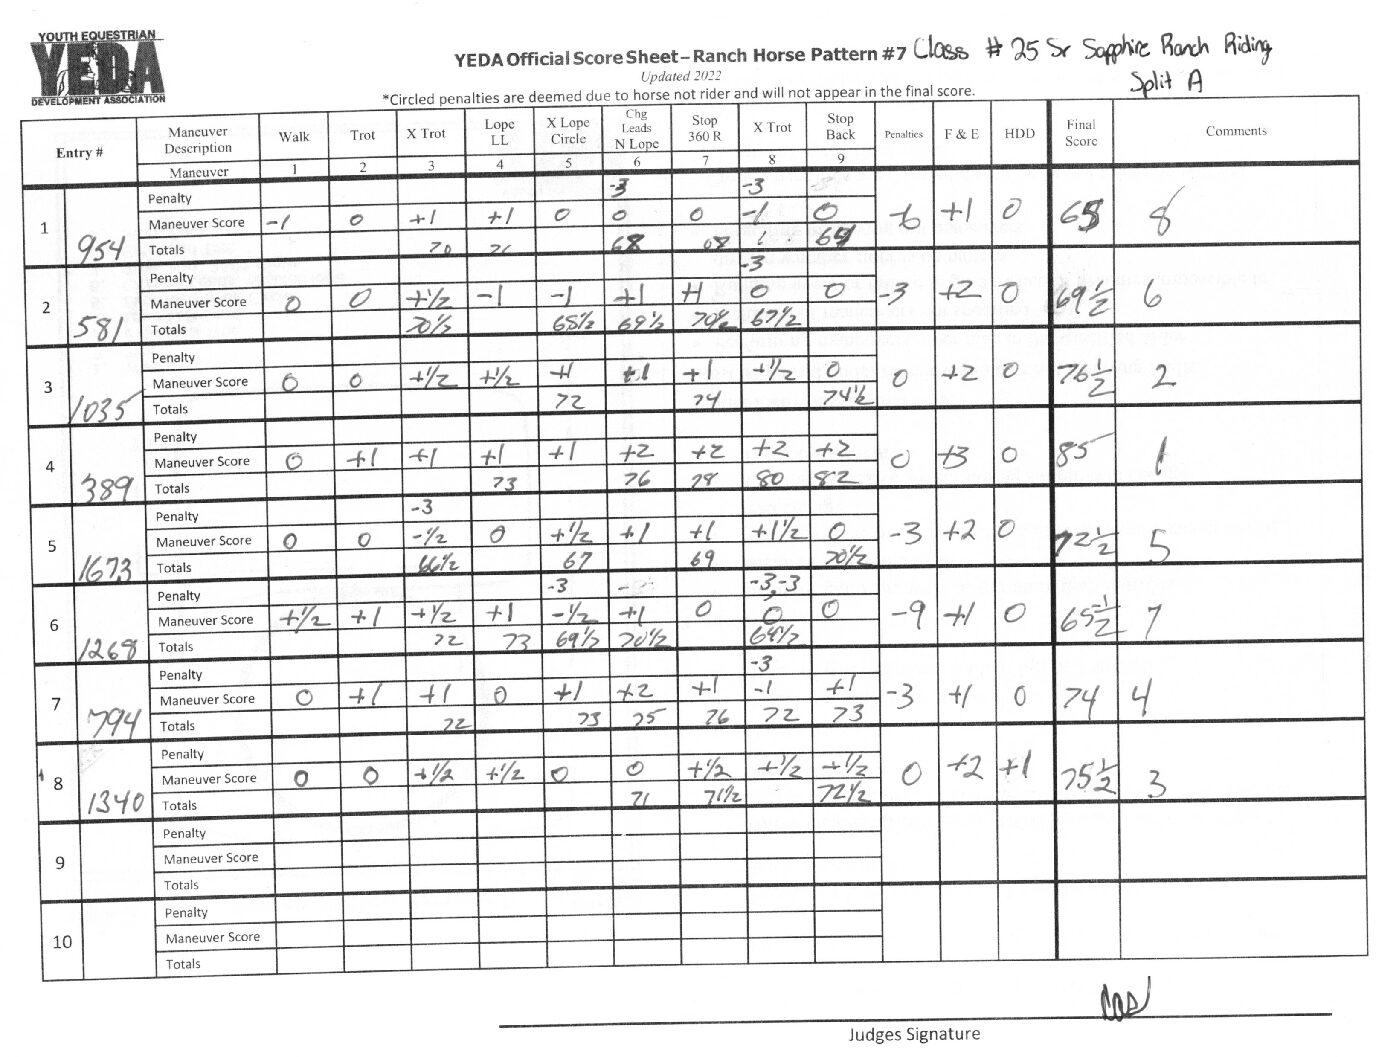 YOUTH EQUESTRIAN
YEDA
DEVELOPMENT ASSOCIATION
YEDA Official Score Sheet – Ranch Horse Pattern #7 Class # 25 Sr Sapphire Ranch Riding
Split A
Updated 2022
*Circled penalties are deemed due to horse not rider and will not appear in the final score.
Entry # Maneuver Description Walk Trot X Trot Lope LL X Lope Circle Chg Leads N Lope Stop 360 R X Trot Stop Back Penalties F & E HDD Final Score Comments
Maneuver 1 2 3 4 5 6 7 8 9
Penalty -3 -3
1 954 Maneuver Score -1 0 +1 +1 0 0 0 -1 0 -6 +1 0 8
Totals 70 68 68
Penalty -3
2 581 Maneuver Score 0 0 +1/2 -1 -1 +1 +1 0 0 -3 +2 0 69 1/2 6
Totals 70 1/2 68 1/2 69 1/2 70 1/2 67 1/2
Penalty
3 1035 Maneuver Score 0 0 +1/2 +1/2 +1 +1 +1 +1/2 0 0 +2 0 76 1/2 2
Totals 72 74 74 1/2
Penalty
4 389 Maneuver Score 0 +1 +1 +1 +1 +2 +2 +2 +2 0 +3 0 85 1
Totals 73 76 78 80 82
Penalty -3
5 1673 Maneuver Score 0 0 -1/2 0 +1/2 +1 +1 +1 1/2 0 -3 +2 0 72 1/2 5
Totals 66 1/2 67 69 70 1/2
Penalty -3 -3,-3
6 1268 Maneuver Score +1/2 +1 +1/2 +1 -1/2 +1 0 0 0 -9 +1 0 65 1/2 7
Totals 72 73 69 1/2 70 1/2 64 1/2
Penalty -3
7 794 Maneuver Score 0 +1 +1 0 +1 +2 +1 -1 +1 -3 +1 0 74 4
Totals 72 73 75 76 72 73
Penalty
8 1340 Maneuver Score 0 0 +1/2 +1/2 0 0 +1/2 +1/2 +1/2 0 +2 +1 75 1/2 3
Totals 71 71 1/2 72 1/2
Penalty
9 Maneuver Score
Totals
Penalty
10 Maneuver Score
Totals
Judges Signature